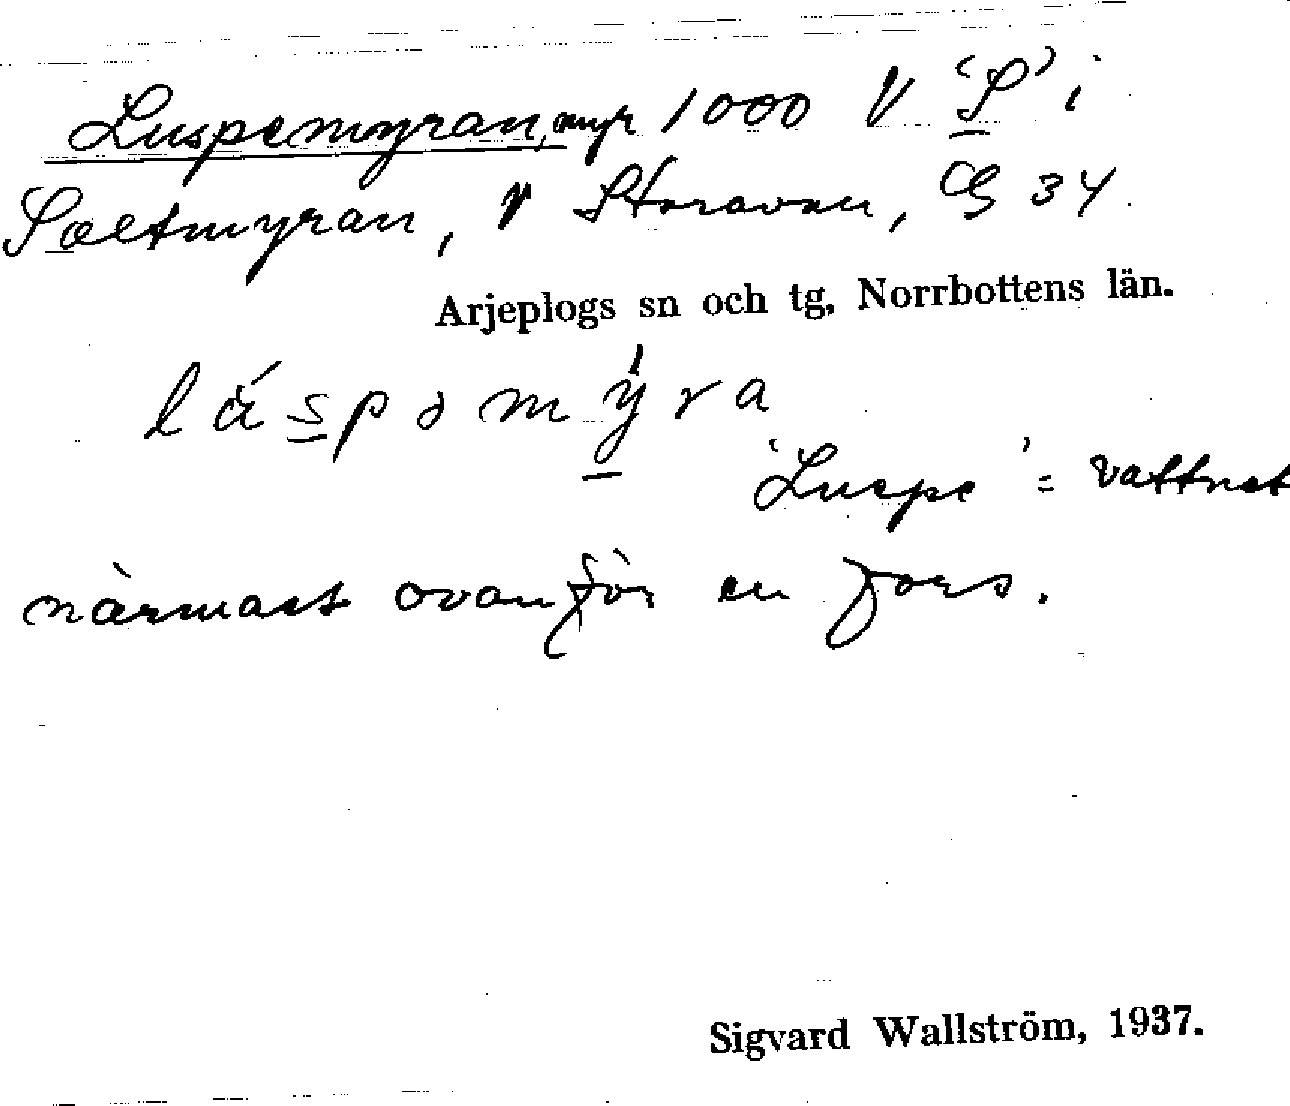 Luspemyran, myr 1000 V 'S' i
Saltmyran, V Storavan, CG 34.
Arjeplogs sn och tg, Norrbottens län.
lǘspəmy̌ra
'Luspe' = vattnet
närmast ovanför en fors.
Sigvard Wallström, 1937.